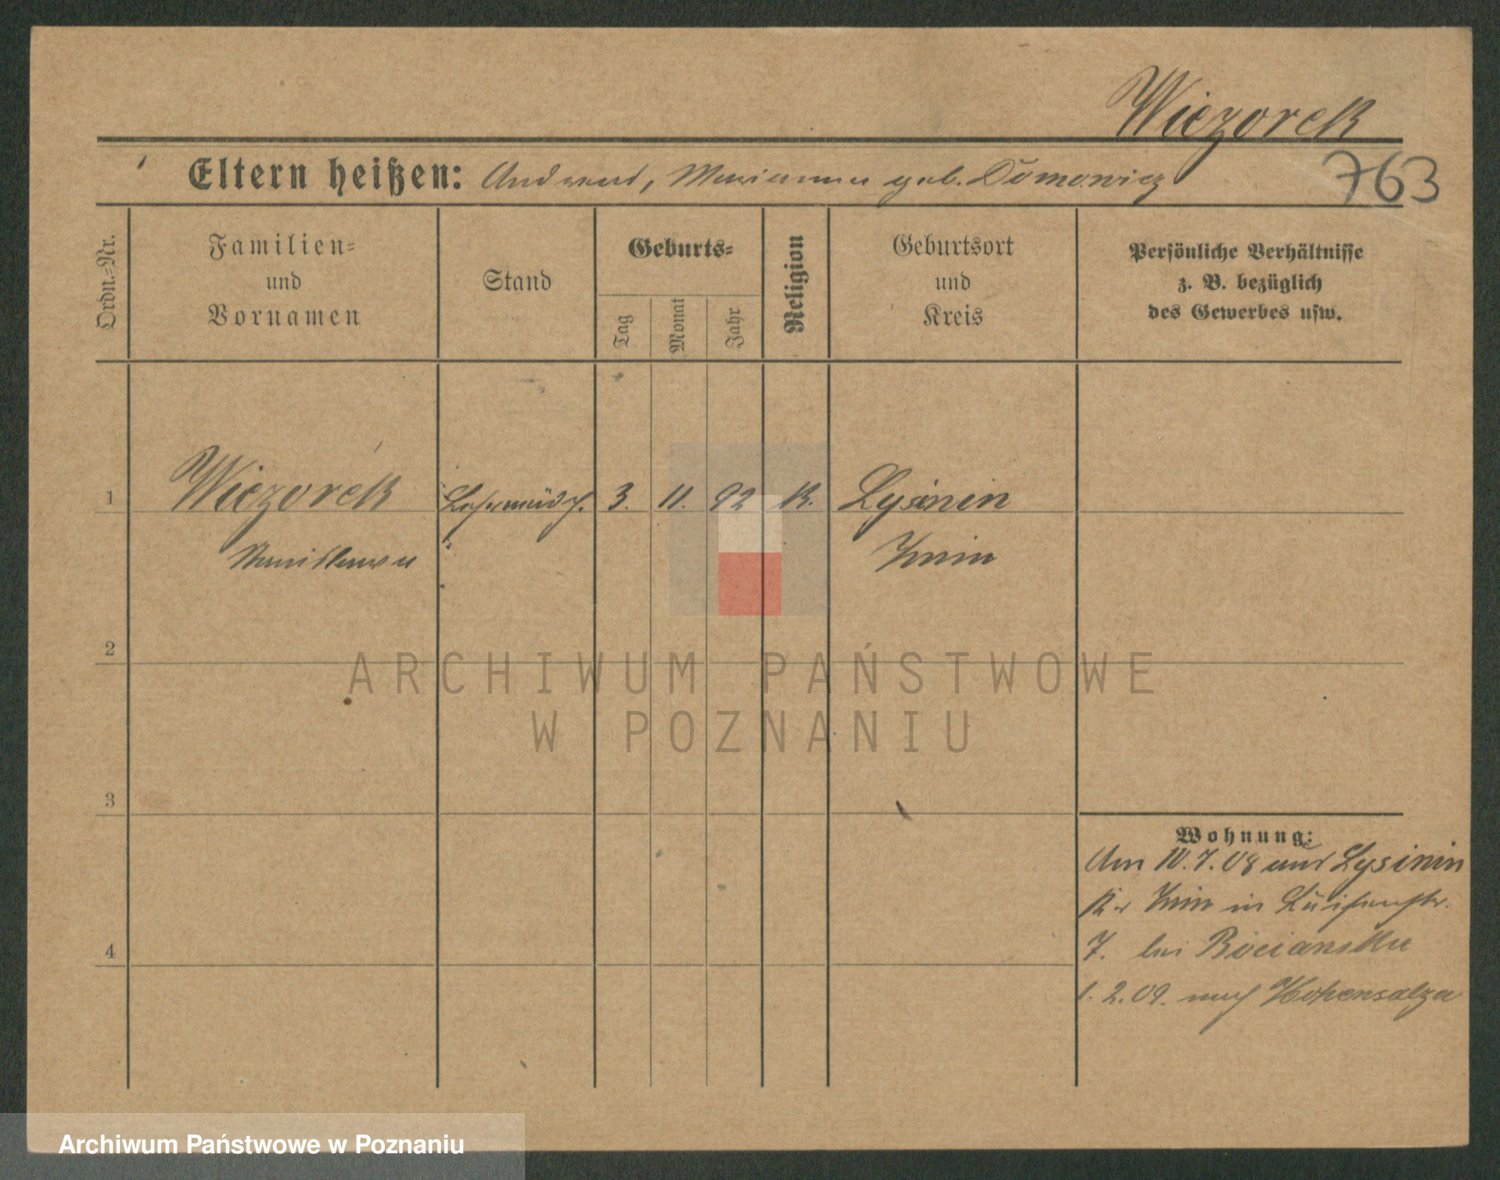 Wiezorek
763
Eltern heißen: Andreas, Marianna geb. Domowicz
Ordn.=Nr.
Familien=
und
Vornamen
Stand
Geburts=
Tag
Monat
Jahr
Religion
Geburtsort
und
Kreis
Persönliche Verhältnisse
z. B. bezüglich
des Gewerbes usw.
1
Wiezorek
3. 11. 92 K. Lysinin
Stanislawa
Znin
2
ARCHIWUM PAŃSTWOWE
W POZNANIU
3
Wohnung:
Am 10.7.08 aus Lysinin
Kr Znin in Luisenstr.
7. bei Bocianska
1.2.09. nach Hohensalza
4
Archiwum Państwowe w Poznaniu